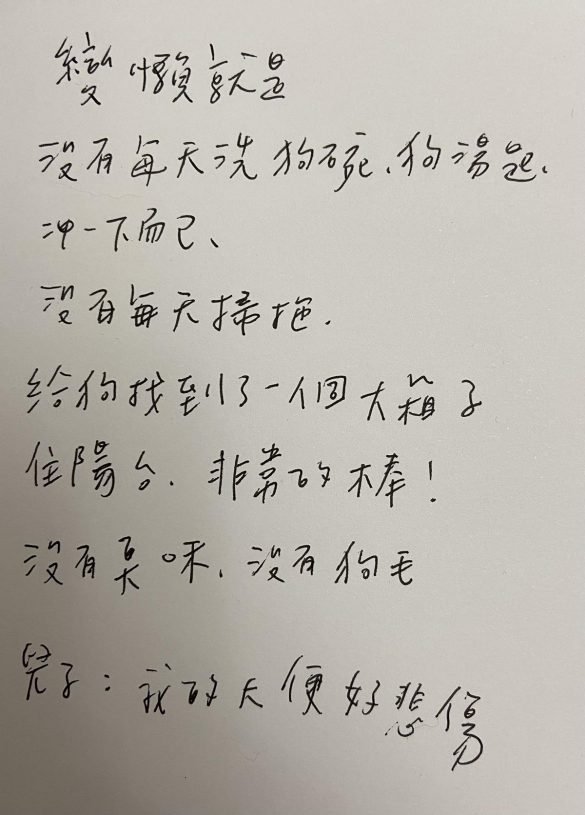 變懶就是
沒有每天洗狗碗、狗湯匙、
沖一下而已、
沒有每天掃拖.
給狗找到了一個大箱子
住陽台.非常的棒!
沒有臭味.沒有狗毛
兒子:我的大便好悲傷